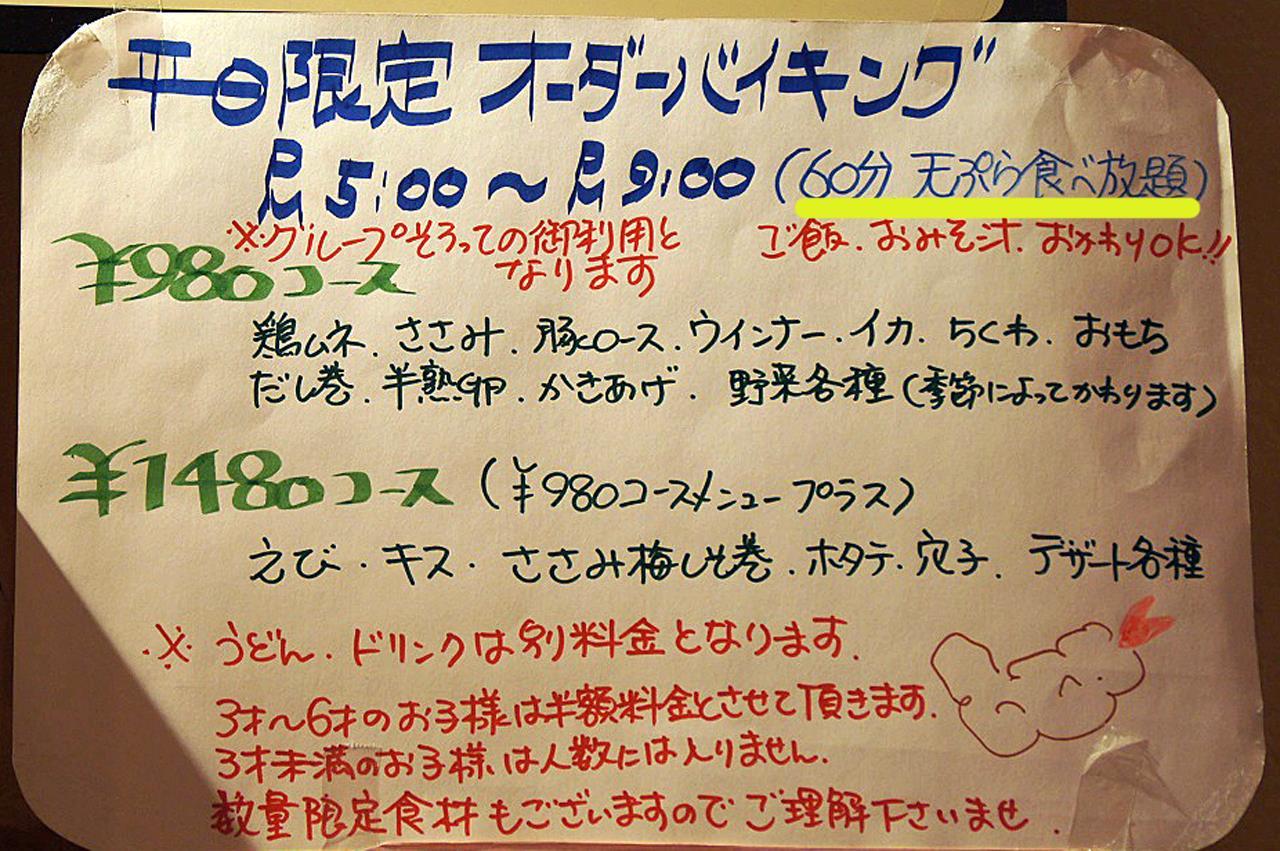 平日限定 オーダーバイキング
PM 5:00〜PM 9:00 (60分 天ぷら食べ放題)
※グループそろっての御利用と
なります
ご飯.おみそ汁.おかわりOK!!
¥980コース
鶏ムネ.ささみ.豚ロース.ウインナー.イカ.ちくわ.おもち
だし巻.半熟卵.かきあげ.野菜各種(季節によってかわります)
¥1480コース (¥980コースメニュープラス)
えび・キス・ささみ梅しそ巻.ホタテ.穴子.デザート各種
※うどん.ドリンクは別料金となります.
3才〜6才のお子様は半額料金とさせて頂きます.
3才未満のお子様は人数には入りません.
数量限定食材もございますのでご理解下さいませ.